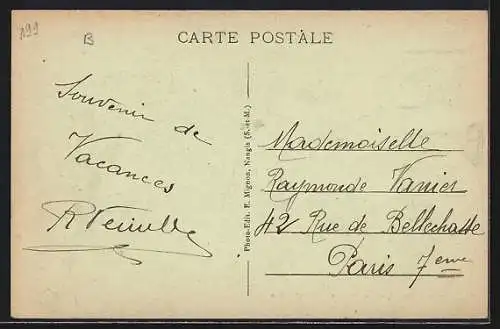 199
B
CARTE POSTALE
Souvenir de
Vacances
Photo-Edit. E. Mignon, Nangis (S.-et-M.)
Mademoiselle
Raymonde Vanier
42 Rue de Bellechasse
Paris 7eme